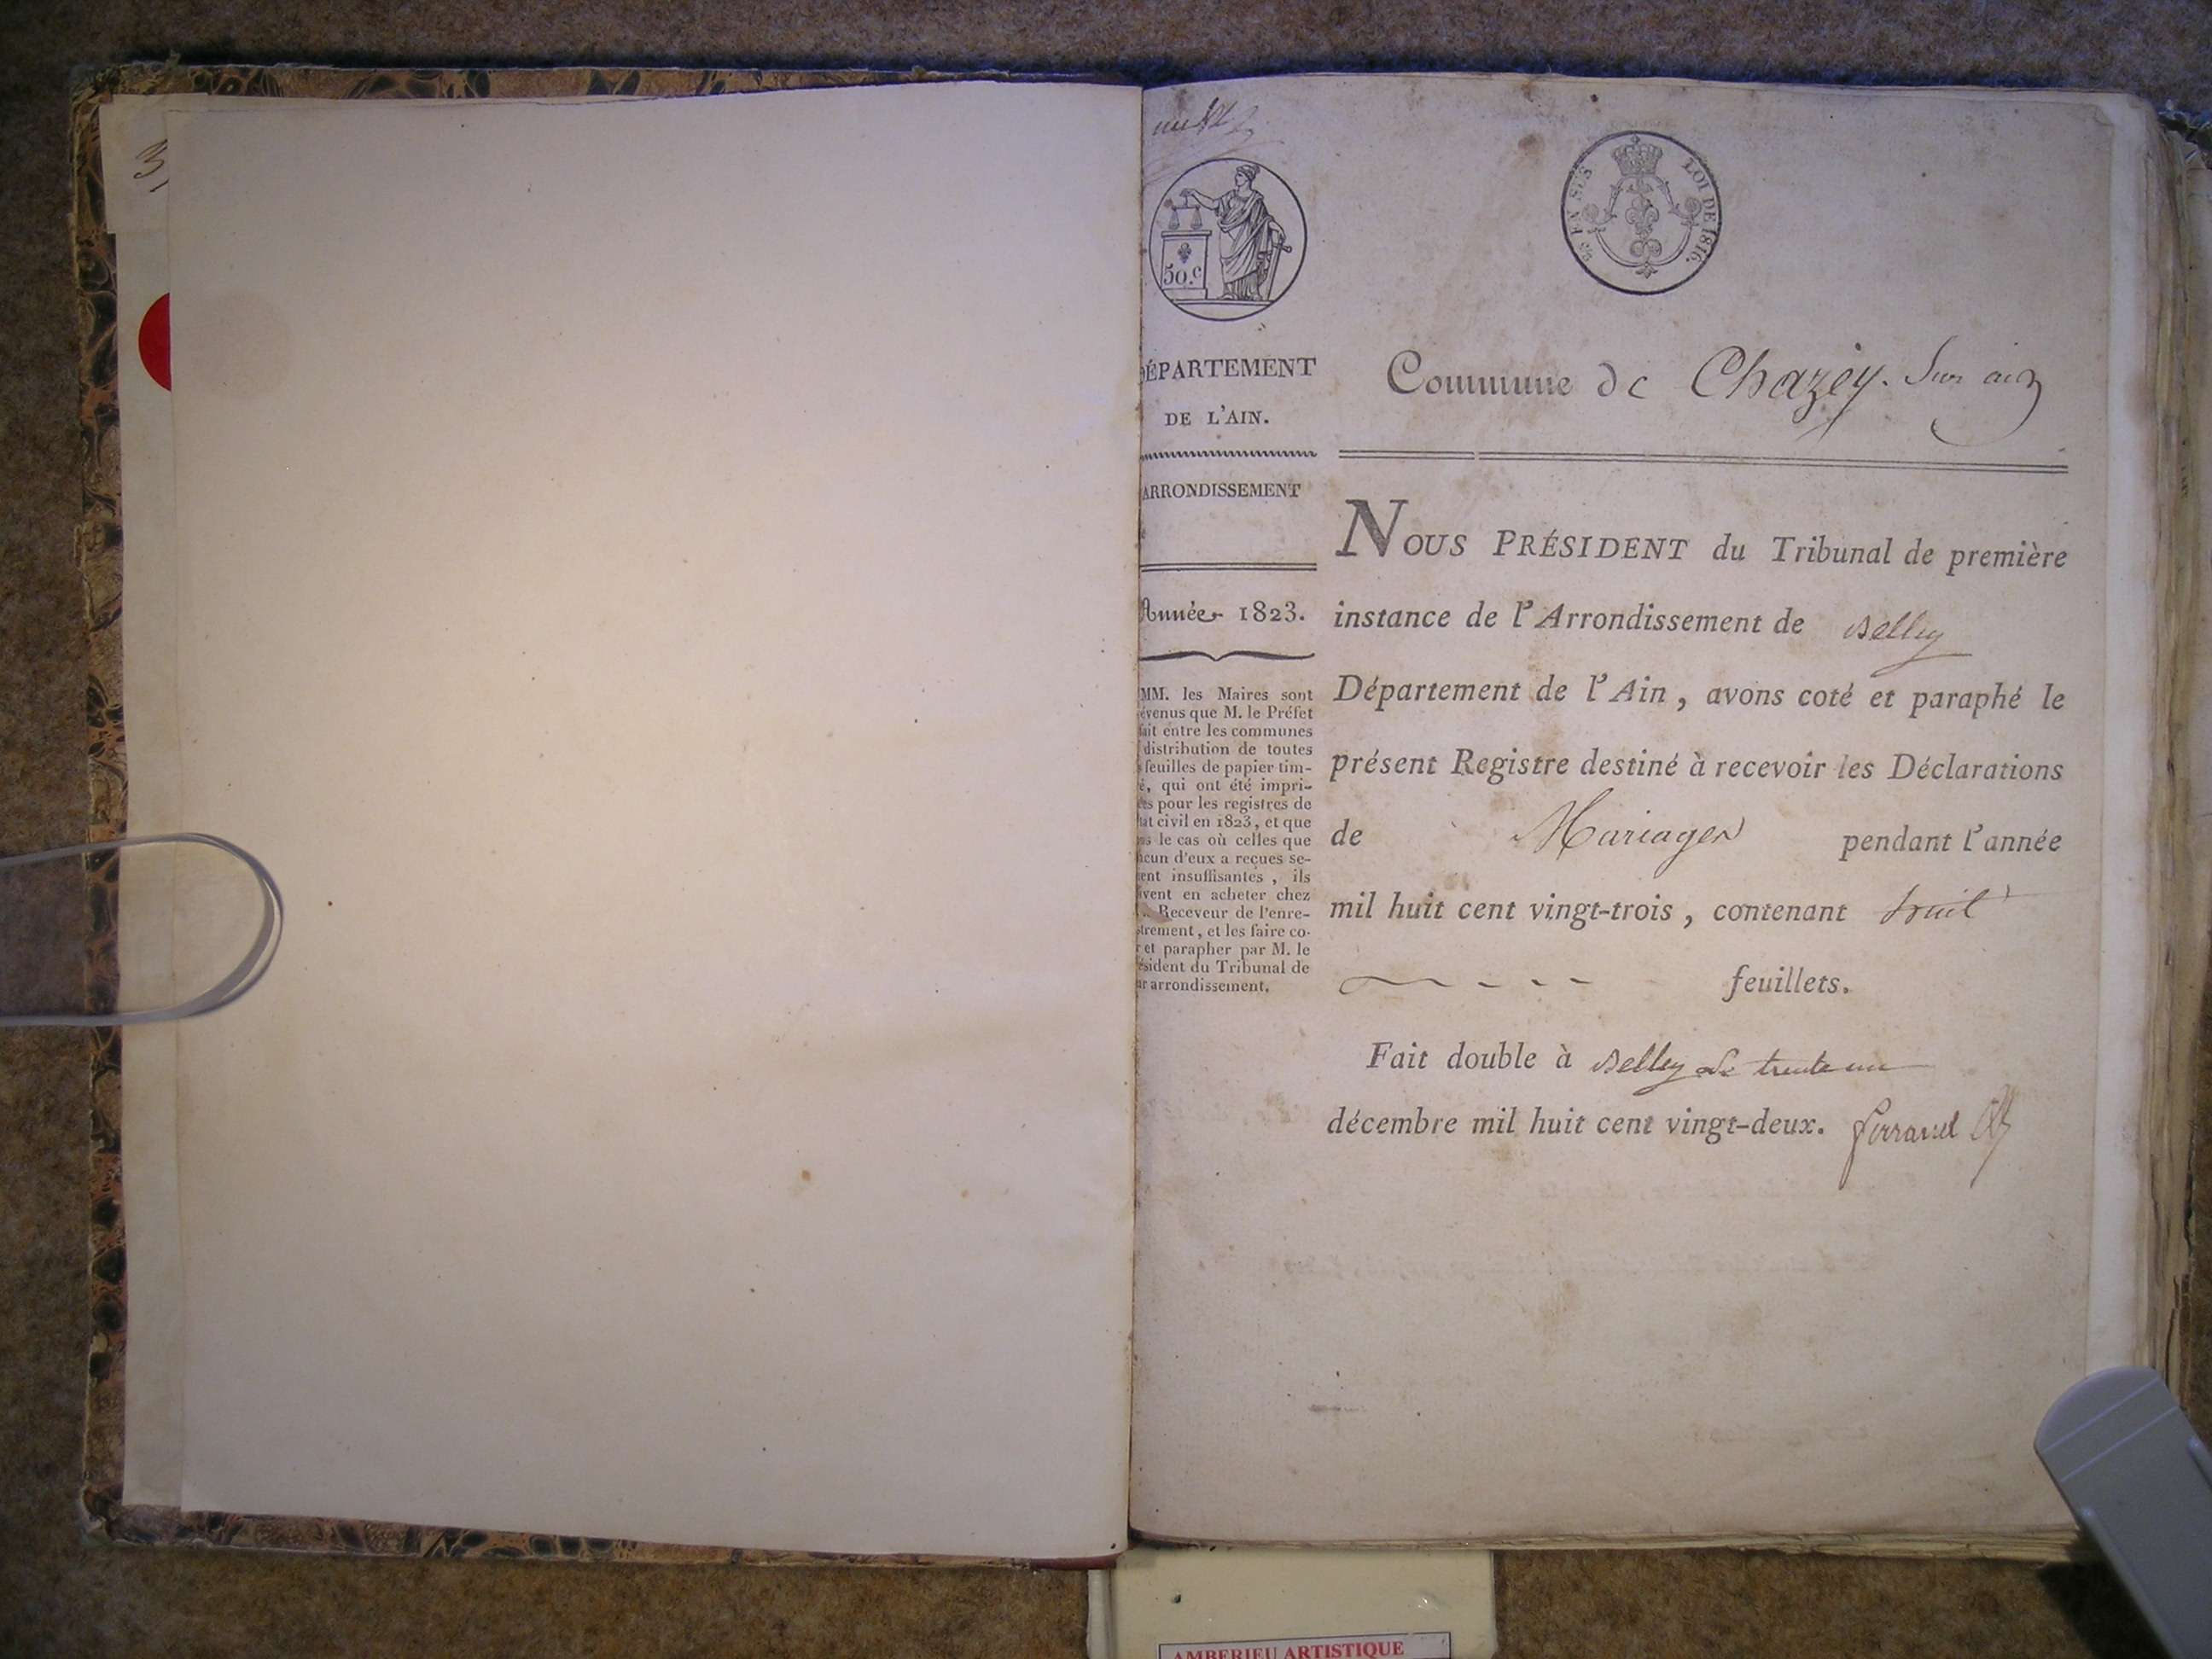 3
50.c
EN SUS
LOI DE 1816.
DÉPARTEMENT
DE L'AIN.
ARRONDISSEMENT
Année 1823.
MM. les Maires sont
évenus que M. le Préfet
ait entre les communes
distribution de toutes
feuilles de papier tim-
é, qui ont été impri-
es pour les registres de
at civil en 1823, et que
le cas où celles que
cun d'eux a reçues se-
ent insuffisantes, ils
vent en acheter chez
Receveur de l'enre-
trement, et les faire co-
r et parapher par M. le
ésident du Tribunal de
ur arrondissement.
Commune de Chazey. Sur ain
NOUS PRÉSIDENT du Tribunal de première
instance de l'Arrondissement de Belley
Département de l'Ain, avons coté et paraphé le
présent Registre destiné à recevoir les Déclarations
de Mariages pendant l'année
mil huit cent vingt-trois, contenant huit
feuillets.
Fait double à Belley le trente un
décembre mil huit cent vingt-deux. ferrand
AMBERIEU ARTISTIQUE